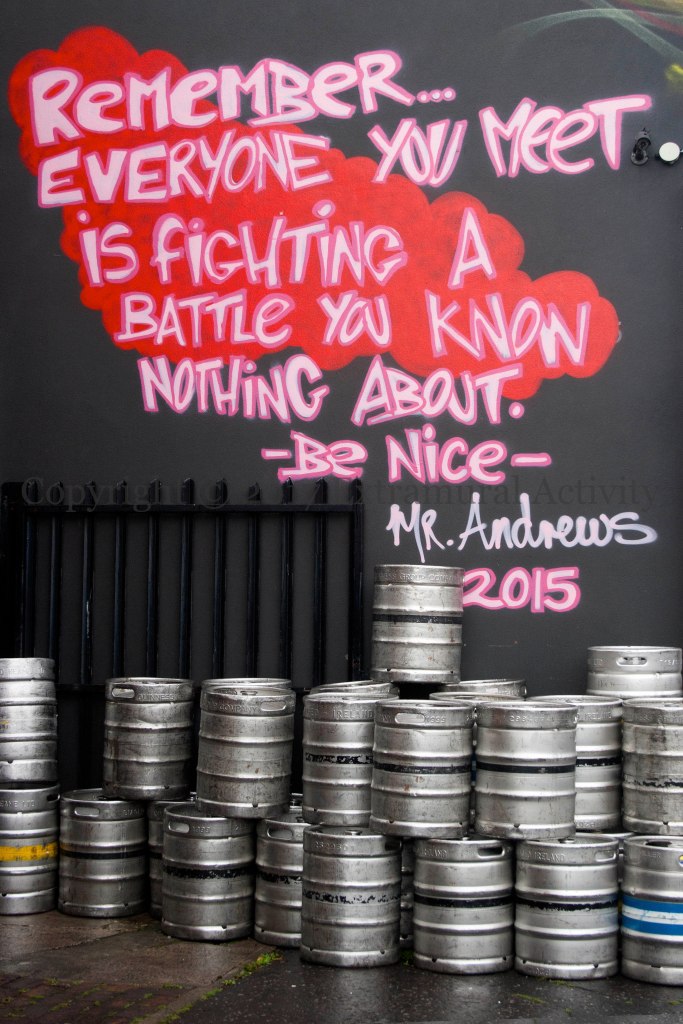 Remember...
EVERYONE YOU MEET
iS FiGHTiNG A
BATTLE YOU KNOW
NOTHiNG ABOUT.
-Be Nice-
Copyright © Extramural Activity
MR. Andrews
2015
IRELAND